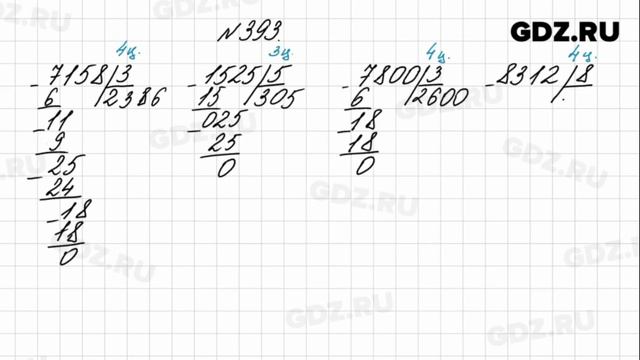 GDZ.RU
№393.
4ц. 3ц 4ц. 4ц.
- 7158 | 3 - 1525 | 5 - 7800 | 3 - 8312 | 8
6 2386 15 305 6 2600 .
- 11 - 025 - 18
9 25 18
- 25 0 0
24
- 18
18
0
GDZ.RU
GDZ.RU
GDZ.RU
GDZ.RU
GDZ.RU
GDZ.RU